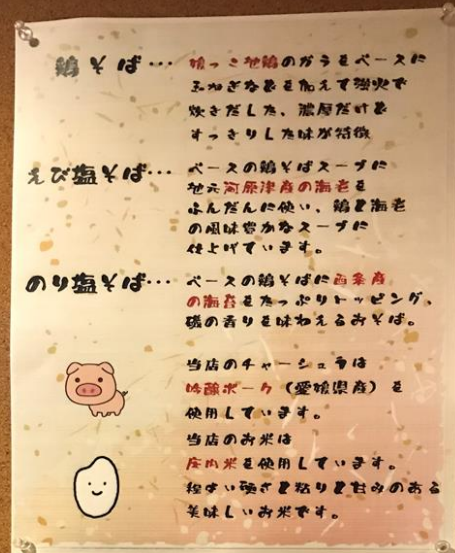 鶏そば… 媛っこ地鶏のガラをベースに
玉ねぎなどを加えて強火で
炊きだした、濃厚だけど
すっきりした味が特徴
えび塩そば… ベースの鶏そばスープに
地元河原津産の海老を
ふんだんに使い、鶏と海老
の風味豊かなスープに
仕上げています。
のり塩そば… ベースの鶏そばに西条産
の海苔をたっぷりトッピング、
磯の香りを味わえるおそば。
当店のチャーシュウは
吟醸ポーク（愛媛県産）を
使用しています。
当店のお米は
庄内米を使用しています。
程よい硬さと粘りと甘みのある
美味しいお米です。